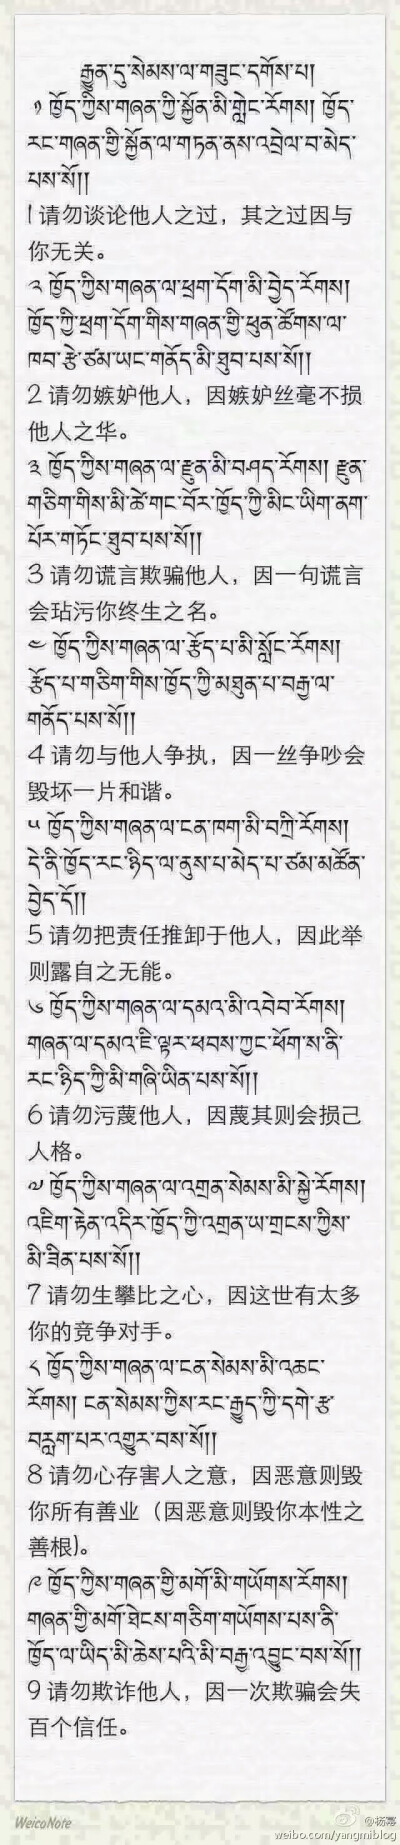 རྒྱུན་དུ་སེམས་ལ་གཟུང་དགོས་པ།
༡ ཁྱོད་ཀྱིས་གཞན་ཀྱི་སྐྱོན་མི་གླེང་རོགས། ཁྱོད་
རང་གཞན་གྱི་སྐྱོན་ལ་གཏན་ནས་འབྲེལ་བ་མེད་
པས་སོ།།
1请勿谈论他人之过，其之过因与
你无关。
༢ ཁྱོད་ཀྱིས་གཞན་ལ་ཕྲག་དོག་མི་བྱེད་རོགས།
ཁྱོད་ཀྱི་ཕྲག་དོག་གིས་གཞན་གྱི་ཕུན་ཚོགས་ལ་
ཁབ་རྩེ་ཙམ་ཡང་གནོད་མི་ཐུབ་པས་སོ།།
2请勿嫉妒他人，因嫉妒丝毫不损
他人之华。
༣ ཁྱོད་ཀྱིས་གཞན་ལ་རྫུན་མི་བཤད་རོགས། རྫུན་
གཅིག་གིས་མི་ཚེ་གང་བོར་ཁྱོད་ཀྱི་མིང་ཡིག་ནག་
པོར་གཏོང་ཐུབ་པས་སོ།།
3请勿谎言欺骗他人，因一句谎言
会玷污你终生之名。
༤ ཁྱོད་ཀྱིས་གཞན་ལ་རྩོད་པ་མི་སློང་རོགས།
རྩོད་པ་གཅིག་གིས་ཁྱོད་ཀྱི་མཐུན་པ་བརྒྱ་ལ་
གནོད་པས་སོ།།
4请勿与他人争执，因一丝争吵会
毁坏一片和谐。
༥ ཁྱོད་ཀྱིས་གཞན་ལ་ངན་ཁག་མི་བཀྲི་རོགས།
དེ་ནི་ཁྱོད་རང་ཉིད་ལ་ནུས་པ་མེད་པ་ཙམ་མཚོན་
བྱེད་དོ།།
5请勿把责任推卸于他人，因此举
则露自之无能。
༦ ཁྱོད་ཀྱིས་གཞན་ལ་དམའ་མི་འབེབ་རོགས།
གཞན་ལ་དམའ་ཇི་ལྟར་ཕབས་ཀྱང་ཕོག་ས་ནི་
རང་ཉིད་ཀྱི་མི་གཞི་ཡིན་པས་སོ།།
6请勿污蔑他人，因蔑其则会损己
人格。
༧ ཁྱོད་ཀྱིས་གཞན་ལ་འགྲན་སེམས་མི་སྐྱེ་རོགས།
འཇིག་རྟེན་འདིར་ཁྱོད་ཀྱི་འགྲན་ཡ་གྲངས་ཀྱིས་
མི་ཟིན་པས་སོ།།
7请勿生攀比之心，因这世有太多
你的竞争对手。
༨ ཁྱོད་ཀྱིས་གཞན་ལ་ངན་སེམས་མི་འཆང་
རོགས། ངན་སེམས་ཀྱིས་རང་རྒྱུད་ཀྱི་དགེ་རྩ་
བརླག་པར་འགྱུར་བས་སོ།།
8请勿心存害人之意，因恶意则毁
你所有善业（因恶意则毁你本性之
善根)。
༩ ཁྱོད་ཀྱིས་གཞན་གྱི་མགོ་མི་གཡོགས་རོགས།
གཞན་གྱི་མགོ་ཐེངས་གཅིག་གཡོགས་པས་ནི་
ཁྱོད་ལ་ཡིད་མི་ཆེས་པའི་མི་བརྒྱ་འབྱུང་བས་སོ།།
9请勿欺诈他人，因一次欺骗会失
百个信任。
WeicoNote
@杨幂
weibo.com/yangmiblog